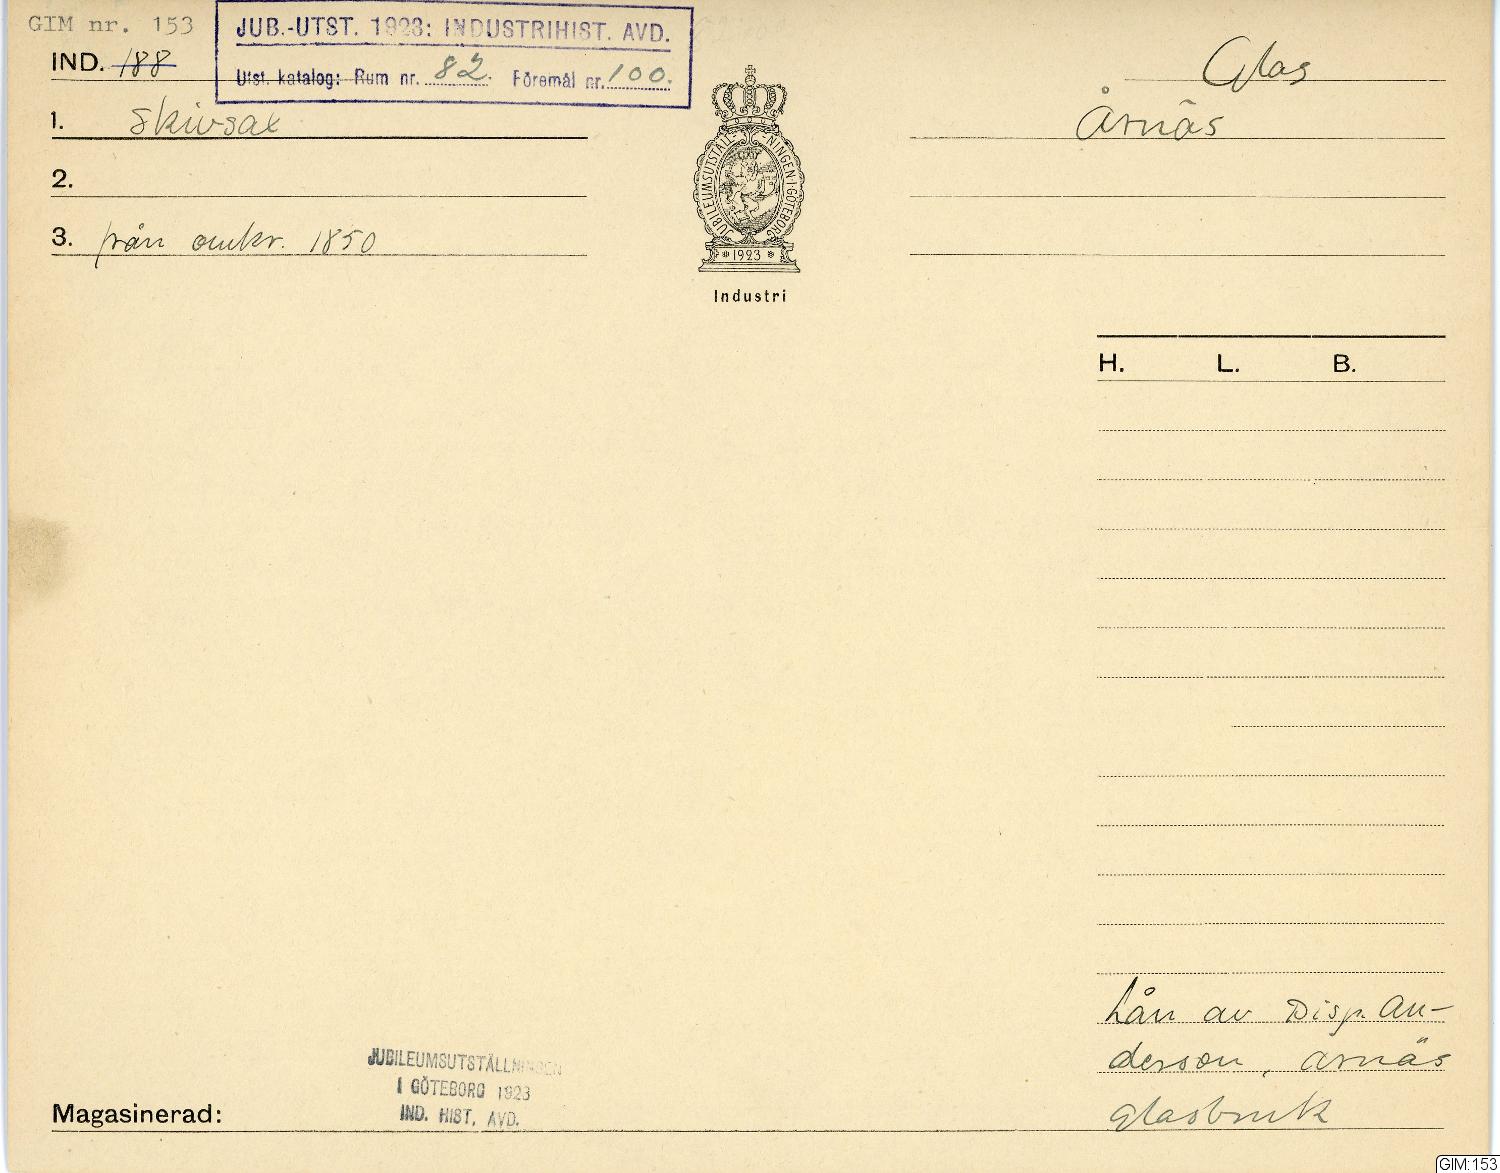 GIM nr. 153
JUB.-UTST. 1923: INDUSTRIHIST. AVD.
IND. 188
Utst. katalog: Rum nr. 82. Föremål nr. 100.
Glas
1. Skivsax
Årnäs
2.
3. från omkr. 1850
JUBILEUMSUTSTÄLL-NINGEN I GÖTEBORG
1923
Industri
H. L. B.
Lån av Disp. An-
derson, Årnäs
glasbruk
JUBILEUMSUTSTÄLLNINGEN
I GÖTEBORG 1923
IND. HIST. AVD.
Magasinerad:
GIM:153